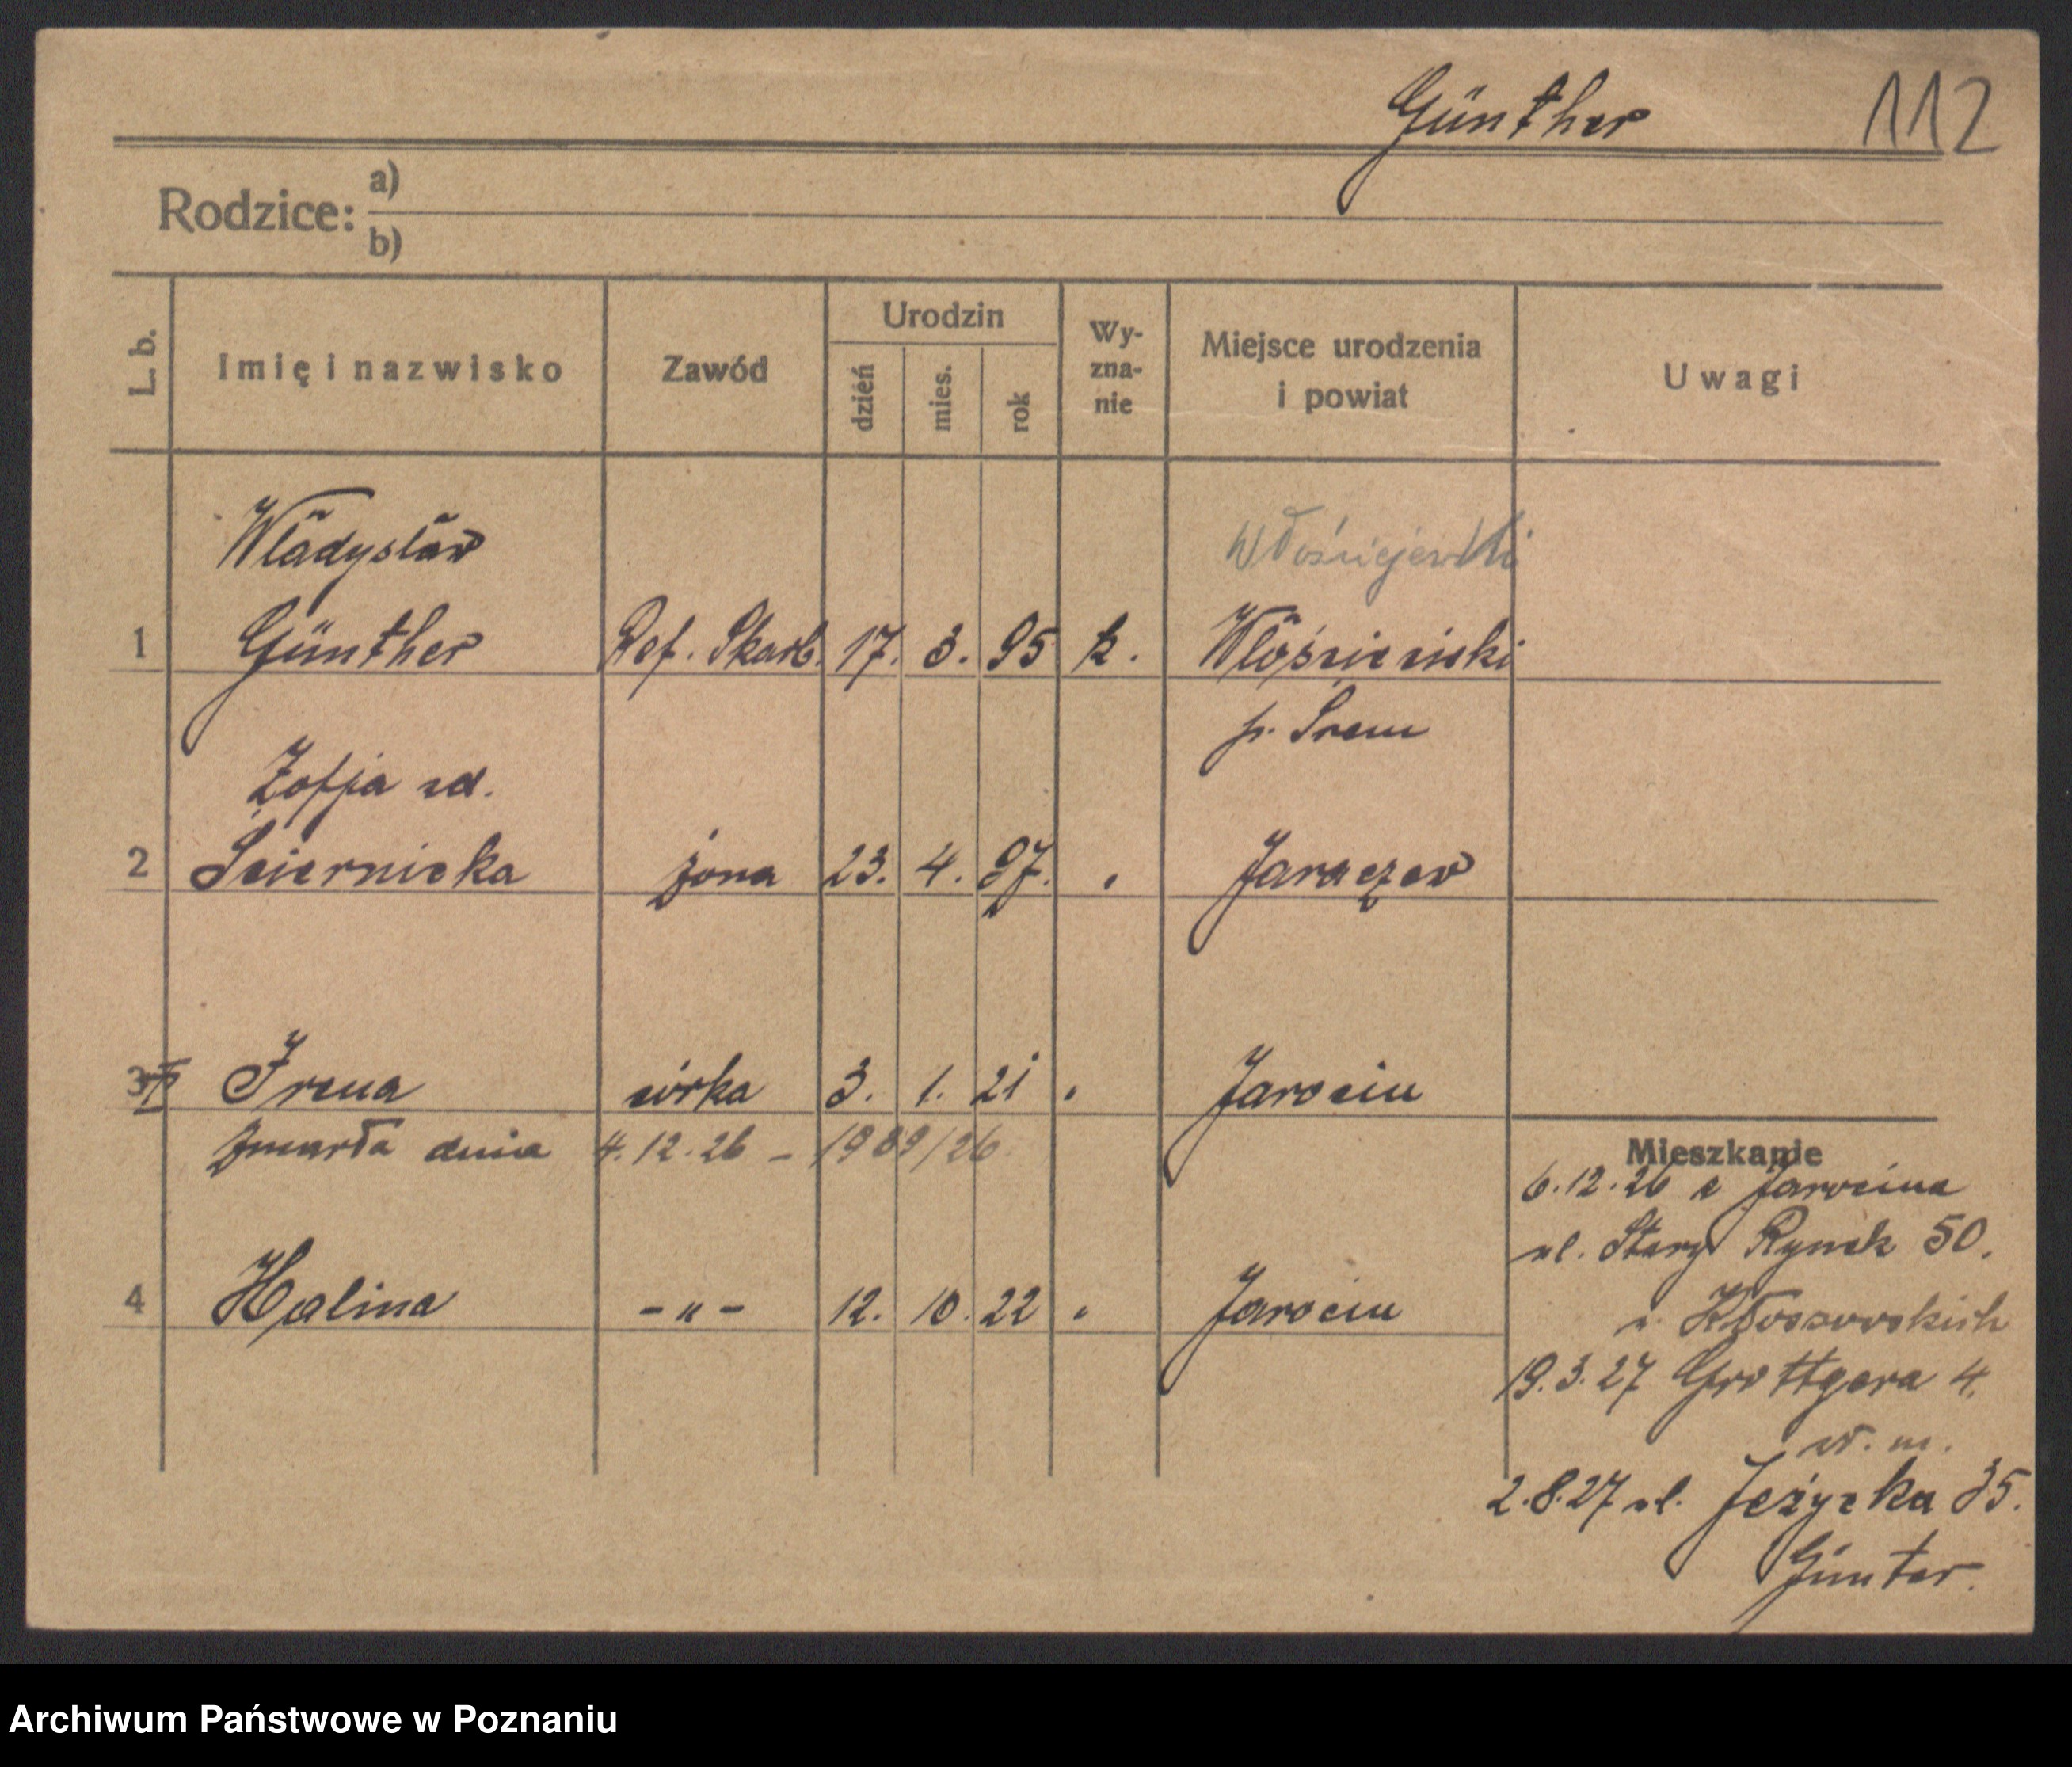 Günther 112
Rodzice: a)
b)
L. b. Imię i nazwisko Zawód Urodzin dzień mies. rok Wy-zna-nie Miejsce urodzenia i powiat Uwagi
Władysław Włościejewki
1 Günther Ref. Skarb. 17. 3. 95 k.
p. Śrem
Zofja zd.
2 Ściernicka żona 23. 4. 97. " Jaraczew
3 Irena córka 3. 1. 21 " Jarocin
zmarła dnia 4.12.26 – 1989/26
Mieszkanie
6.12.26 z Jarocina
ul. Stary Rynek 50.
4 Halina – " – 12. 10. 22 " Jarocin
u Kłossowskich
19.3.27 Grottgera 4.
wł. m.
2.8.27 ul. Jeżycka 35.
Günter.
Archiwum Państwowe w Poznaniu